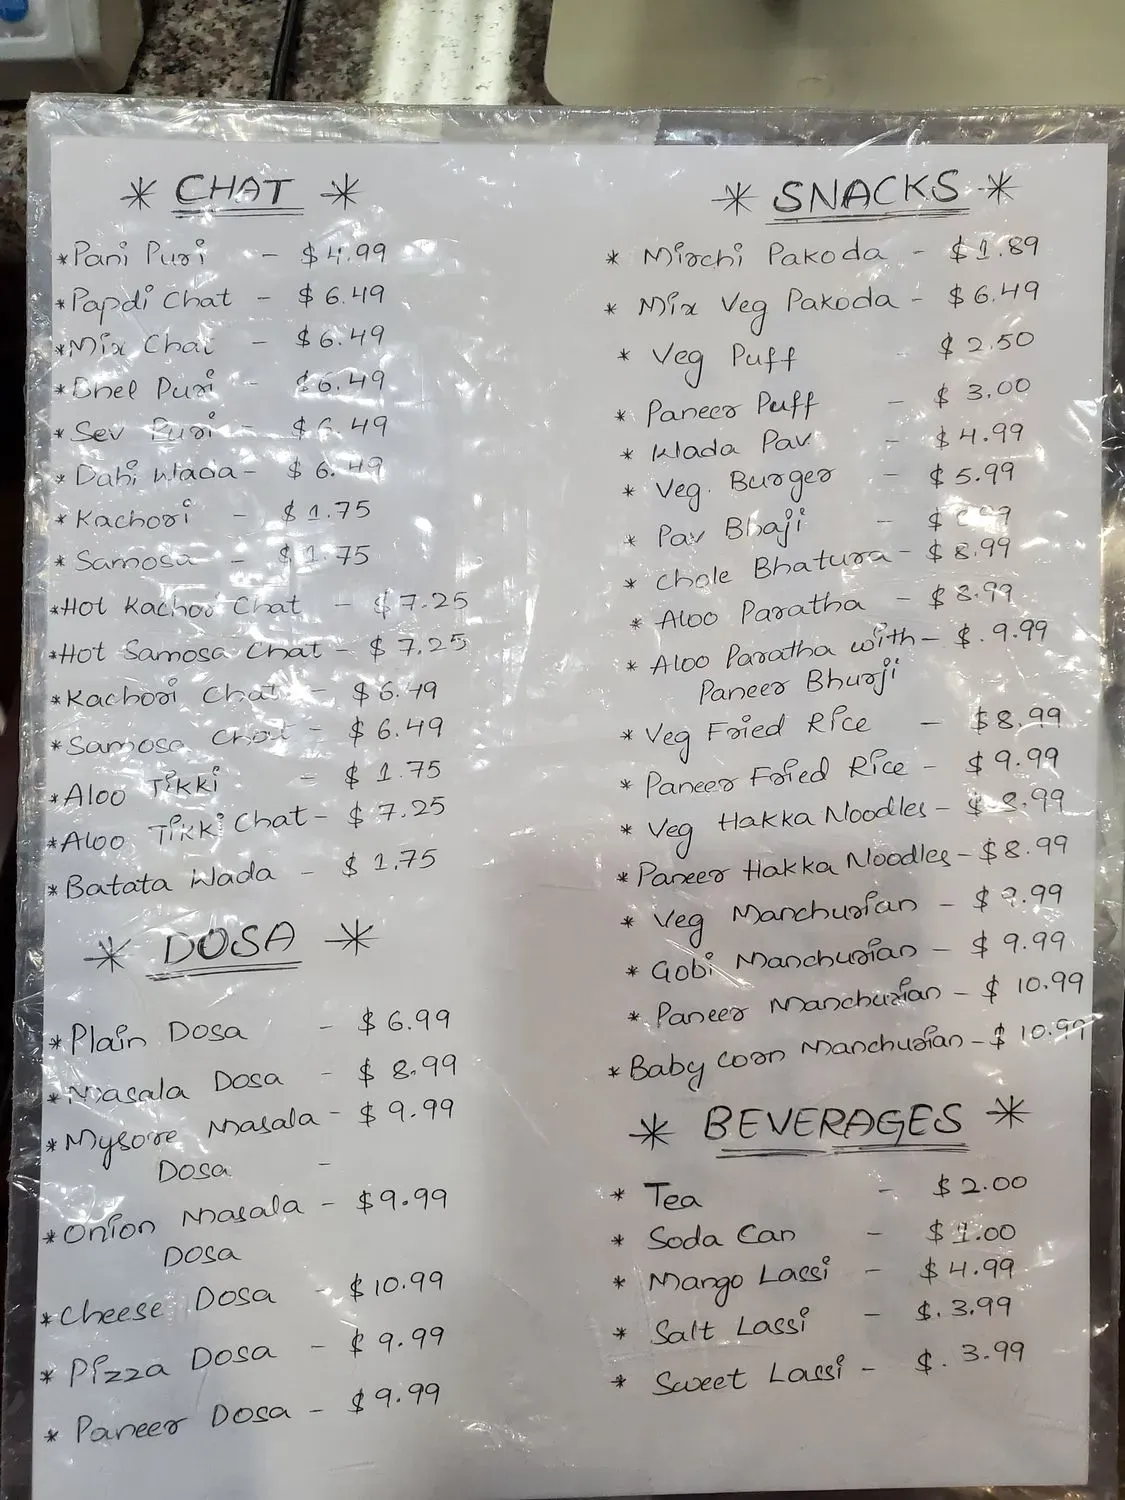 * CHAT *
* Pani Puri - $4.99
* Papdi Chat - $6.49
* Mix Chat - $6.49
* Bhel Puri - $6.49
* Sev Puri - $6.49
* Dahi Wada - $6.49
* Kachori - $1.75
* Samosa - $1.75
* Hot Kachori Chat - $7.25
* Hot Samosa Chat - $7.25
* Kachori Chat - $6.49
* Samosa Chat - $6.49
* Aloo Tikki - $1.75
* Aloo Tikki Chat - $7.25
* Batata Wada - $1.75
* DOSA *
* Plain Dosa - $6.99
* Masala Dosa - $8.99
* Mysore Masala - $9.99
Dosa -
* Onion Masala - $9.99
Dosa
* Cheese Dosa - $10.99
* Pizza Dosa - $9.99
* Paneer Dosa - $9.99
* SNACKS *
* Mirchi Pakoda - $1.89
* Mix Veg Pakoda - $6.49
* Veg Puff - $2.50
* Paneer Puff - $3.00
* Wada Pav - $4.99
* Veg. Burger - $5.99
* Pav Bhaji - $
* Chole Bhatura - $8.99
* Aloo Paratha - $8.99
* Aloo Paratha with - $.9.99
Paneer Bhurji
* Veg Fried Rice - $8.99
* Paneer Fried Rice - $9.99
* Veg Hakka Noodles - $8.99
* Paneer Hakka Noodles - $8.99
* Veg Manchurian - $9.99
* Gobi Manchurian - $9.99
* Paneer Manchurian - $10.99
* Baby Corn Manchurian - $10.99
* BEVERAGES *
* Tea - $2.00
* Soda Can - $1.00
* Mango Lassi - $4.99
* Salt Lassi - $.3.99
* Sweet Lassi - $.3.99